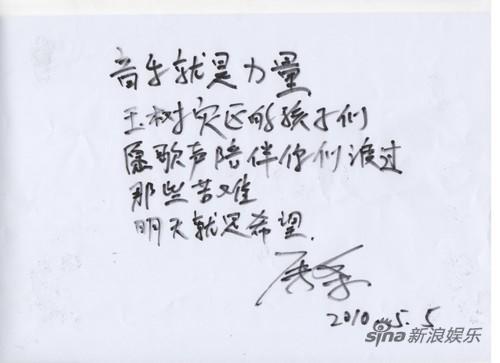 音乐就是力量
玉树灾区的孩子们
愿歌声陪伴你们渡过
那些苦难
明天就是希望.
2010.5.5
sina新浪娱乐